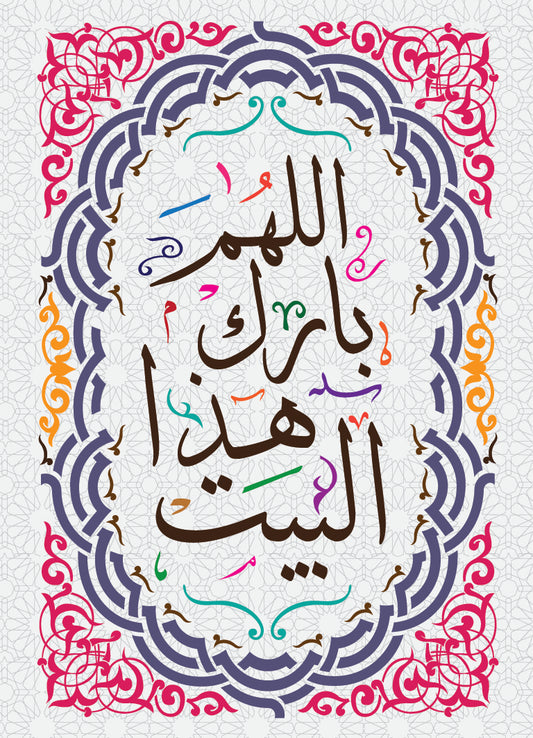 اللهم
بارك
هذا
البيت